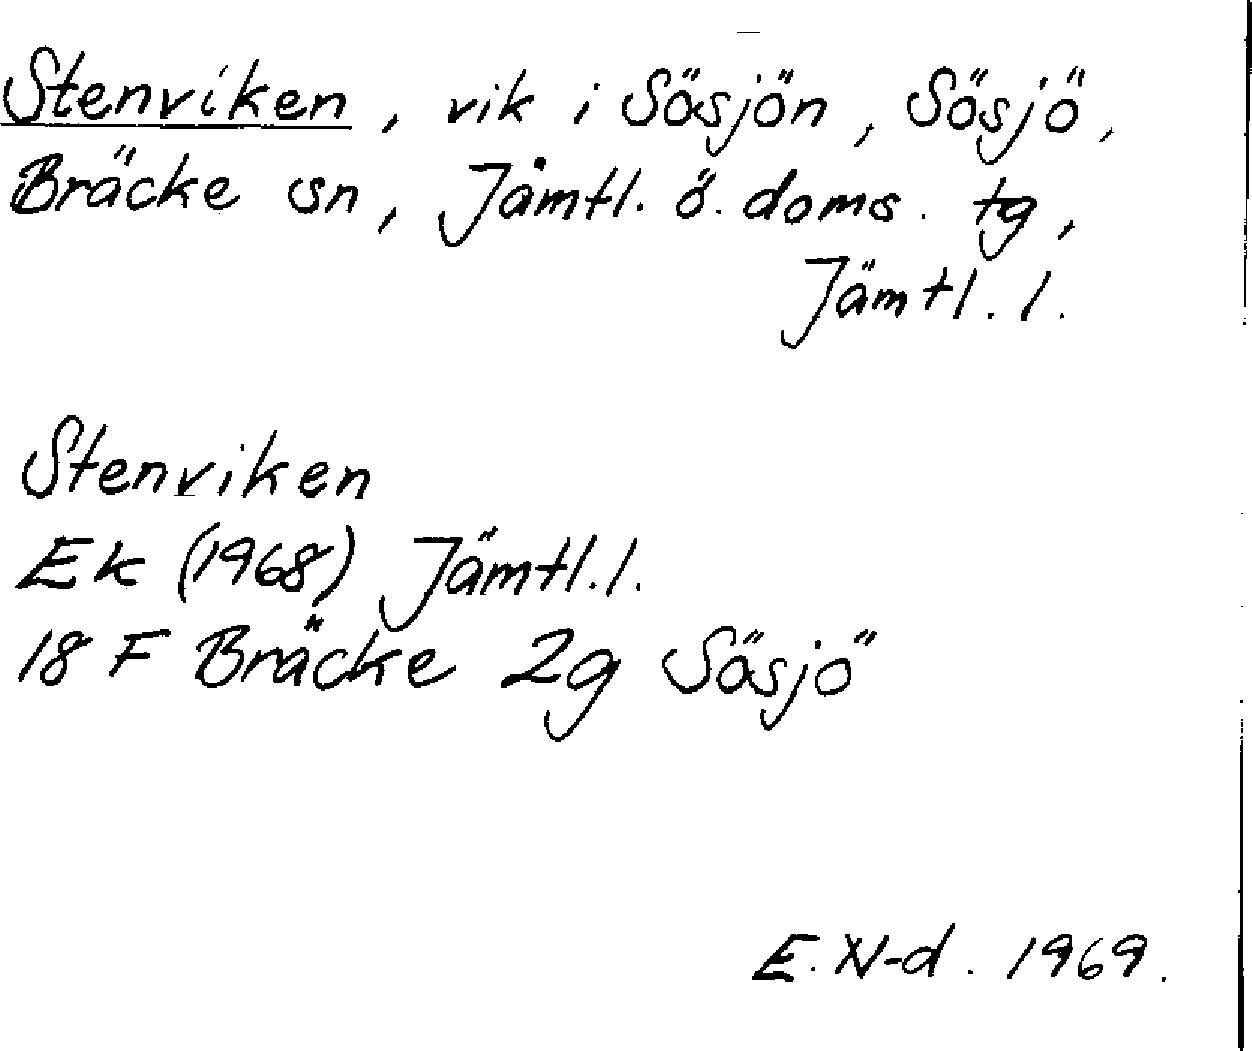 Stenviken, vik i Sösjön, Sösjö,
Bräcke sn, Jämtl. ö. doms. tg,
Jämtl. l.
Stenviken
Ek (1968) Jämtl. l.
18 F Bräcke 2g Sösjö
E. N-d. 1969.